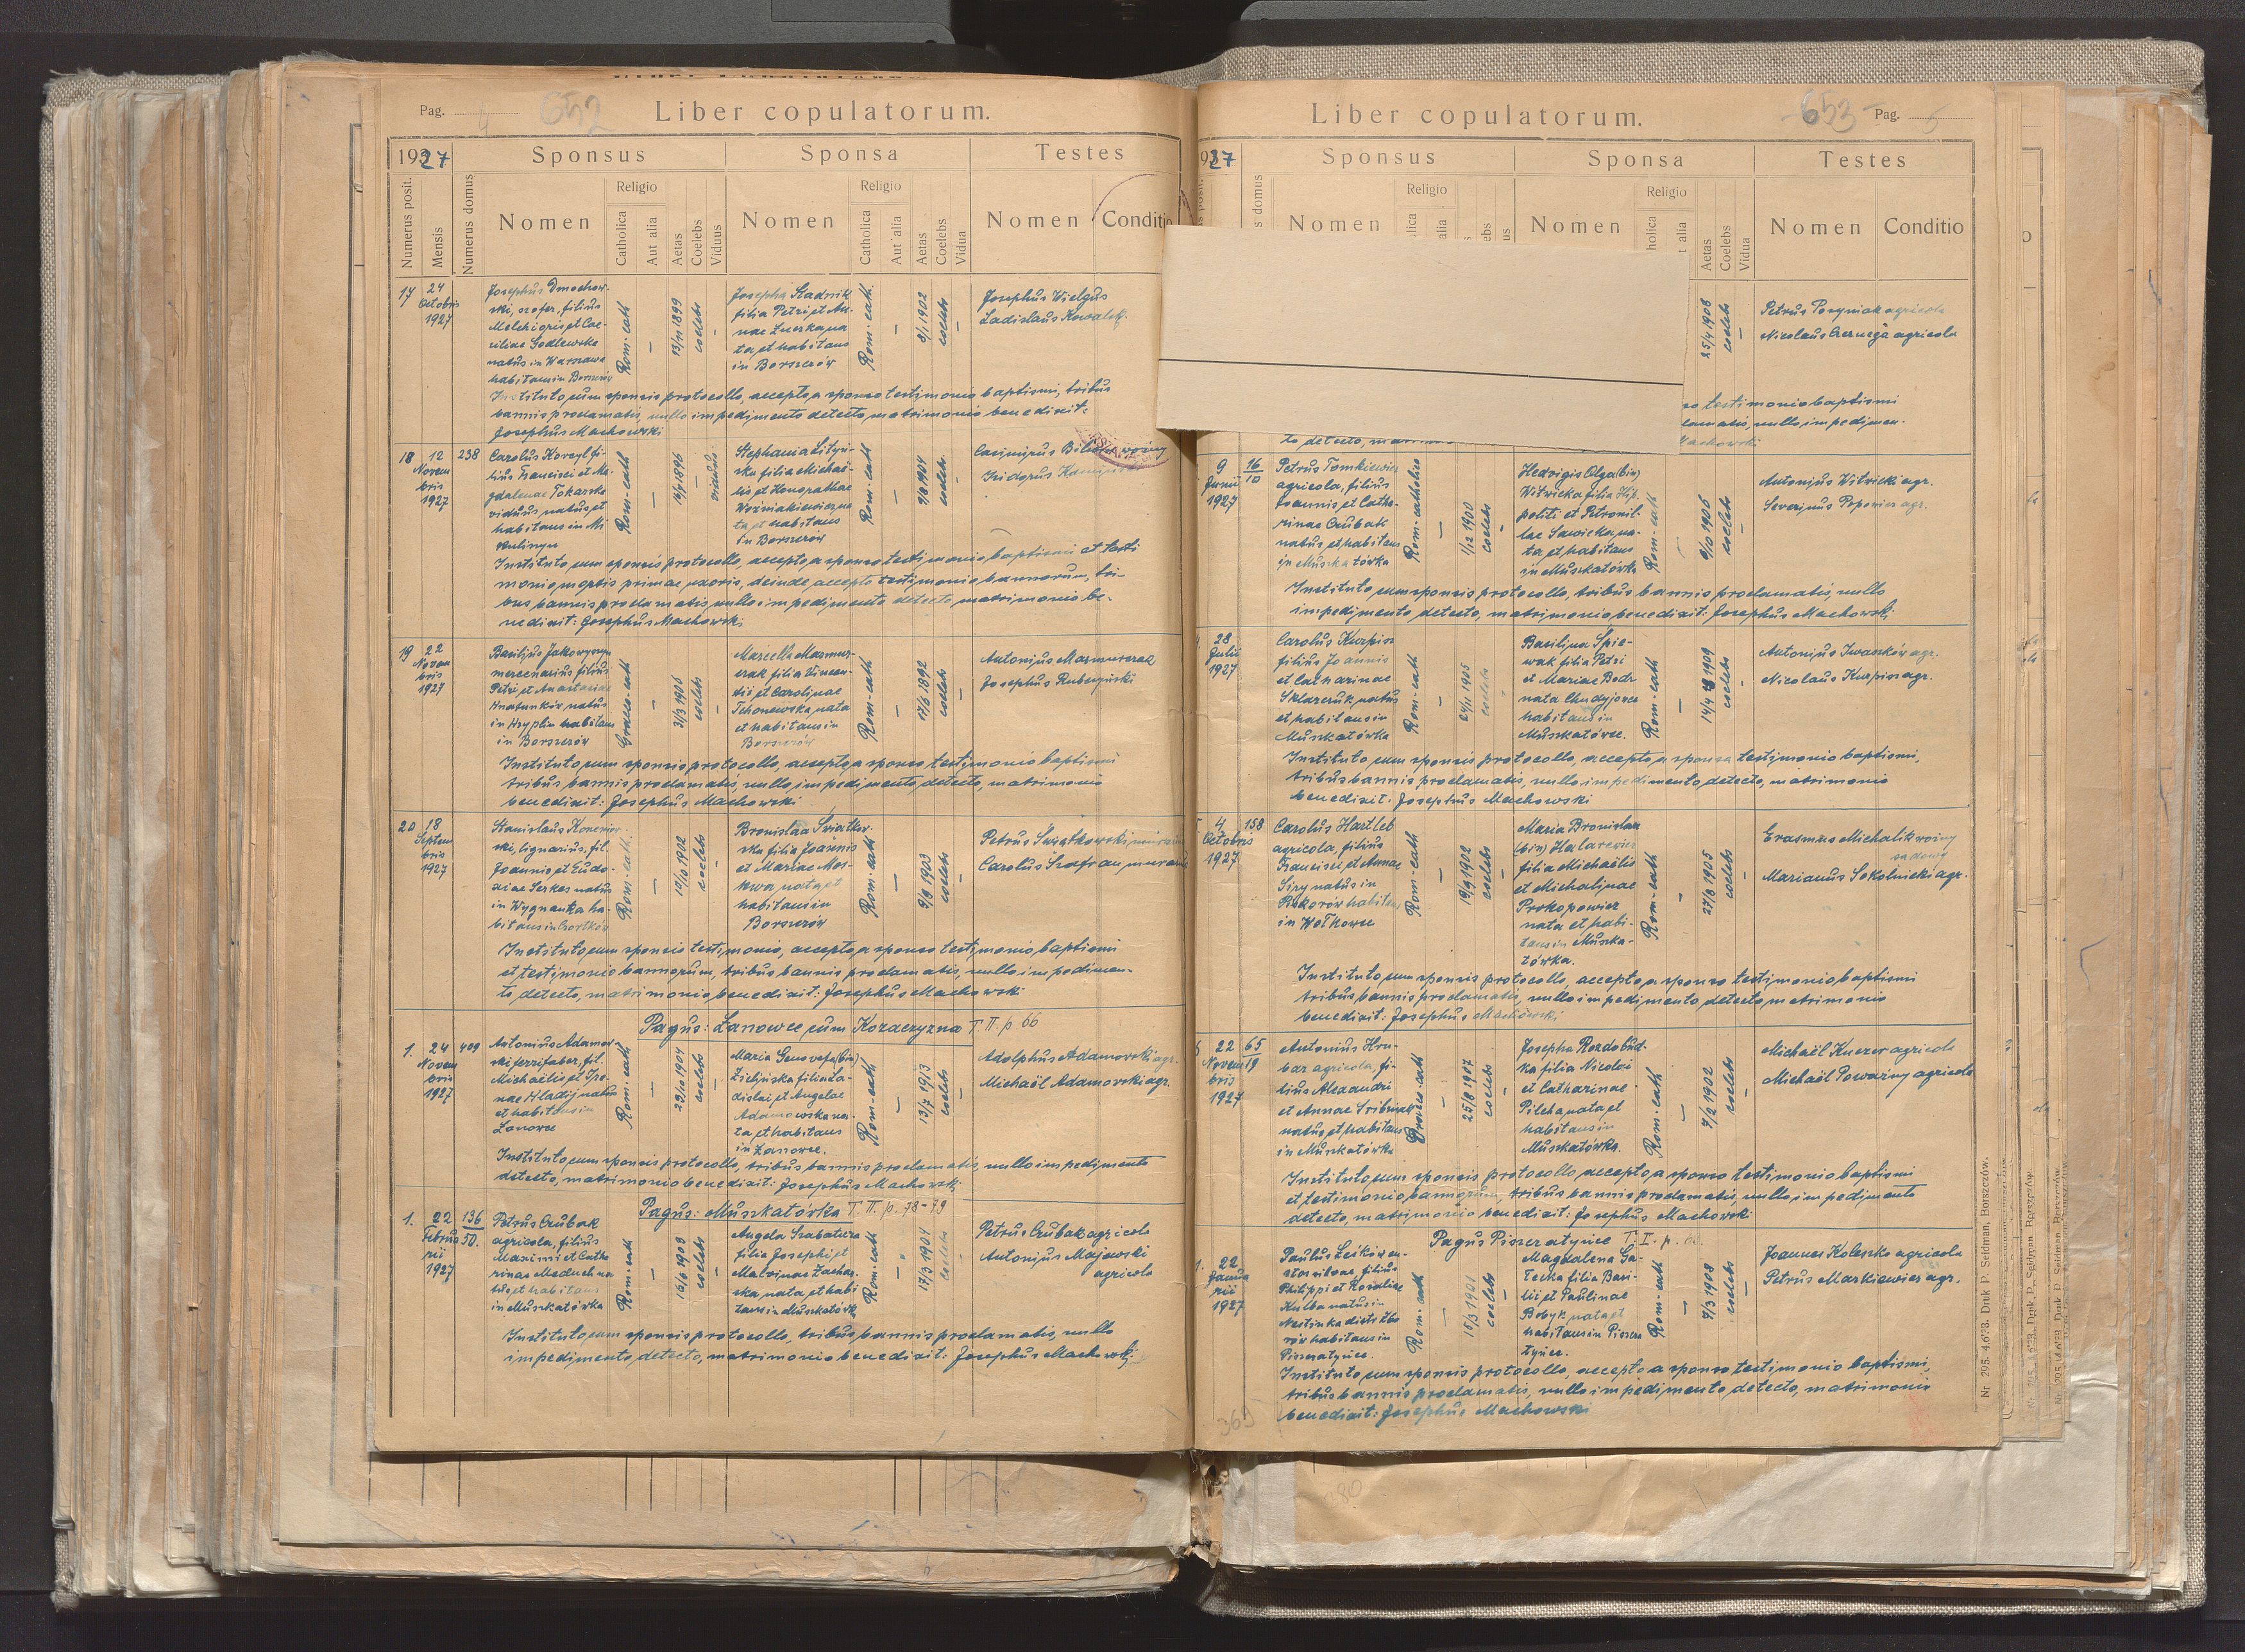 Pag. 4 652 Liber copulatorum.
1927 Sponsus Sponsa Testes
Numerus posit. Mensis Numerus domus Nomen Religio Catholica Aut alia Aetas Coelebs Viduus Nomen Religio Catholica Aut alia Aetas Coelebs Vidua Nomen Conditio
17
24
Octobris
1927
Josephus Dmochow-
ski, szofer, filius
Melchioris et Cae-
ciliae Godlewska
natus in Warszawa
habitans in Borszczów
Rom. cath
—
13/11 1899
coelebs
Josepha Stadnik
filia Petri et An-
nae Zuerka na
ta et habitans
in Borszczów
Rom. cath.
—
8/1 1902
coelebs
Josephus Wielgus
Ladislaus Kowalsk.
Instituto cum sponsis protocollo, accepto a sponso testimonio baptismi, tribus
bannis proclamatis, nullo impedimento detecto, matrimonio benedixit:
Josephus Machowski
18
12
Novem
bris
1927
238
Carolus Korczyl fi-
lius Francisci et Ma-
gdalenae Tokarska
viduus natus et
habitans in Mi
kulińcyn
Rom-cath
—
viduus
Stephania Lityń-
ska filia Michaë-
lis et Honorathae
Woźniakiewicz na
ta et habitans
in Borszczów
Rom-cath
—
21/8 1904
coelebs
Casimirus
Isidorus
Instituto cum sponsis protocollo, accepto a sponso testimonio baptismi et testi
monio mortis primae uxoris, deinde accepto testimonio bannorum, tri-
bus bannis proclamatis, nullo impedimento detecto matrimonio be-
nedixit: Josephus Machowski
19
22
Novem
bris
1927
Basilius Jakowyszyn
mercenarius filius
Petri et Anastasiae
Hnatunków natus
in Hryplin habitans
in Borszczów
Graeco-cath
—
31/3 1906
coelebs
Marcella Mazmur-
czak filia Vincen-
tii et Carolinae
Tchonewska, nata
et habitans in
Borszczów
Rom-cath
—
17/6 1892
coelebs
Antonius Mazmurczak
Josephus Rubczyński
Instituto cum sponsis protocollo, accepto a sponso testimonio baptismi
tribus bannis proclamatis, nullo impedimento detecto, matrimonio
benedixit: Josephus Machowski
20
18
Septem
bris
1927
Stanislaus Koncew-
ski, lignarius, fil.
Joannis et Eudo-
xiae Serkes natus
in Wygnanka ha-
bitans in Czortków
Rom-cath.
—
10/10 1902
coelebs
Bronislaa Swiatkow-
ska filia Joannis
et Mariae Mos-
kwa nata et
habitans in
Borszczów
Rom-cath
—
9/8 1903
coelebs
Petrus Świątkowski,
Carolus Szafran, murarius
Instituto cum sponsis testimonio, accepto a sponso testimonio baptismi
et testimonio bannorum, tribus bannis proclamatis, nullo impedimen-
to detecto, matrimonio benedixit: Josephus Machowski
Pagus: Łanowce cum Kozaczyzna T. II. p. 66
1.
24
Novem
bris
1927
409
Antonius Adamow-
ski ferrifaber, fil.
Michaëlis et Ire-
nae Hladij natus
et habitans in
Lanowce
Rom. cath
—
29/10 1904
coelebs
Maria Genovefa (bin)
Zielińska filia La-
dislai et Angelae
Adamowska na-
ta et habitans
in Łanowce.
Rom-cath
—
13/7 1913
coelebs
Adolphus Adamowski agr.
Michaël Adamowski agr.
Instituto cum sponsis protocollo, tribus bannis proclamatis, nullo impedimento
detecto, matrimonio benedixit: Josephus Machowski
Pagus: Muszkatówka T. II. p. 78-79
1.
22
Februa
rii
1927
136
50.
Petrus Czubak
agricola, filius
Maximi et Catha
rinae Meduch na
tus et habitans
in Muszkatówka
Rom. cath
—
16/6 1903
coelebs
Angela Szabatura
filia Josephi et
Malvinae Zachar-
ska, nata et habi
tans in Muszkatówk
Rom. cath
17/3 1904
coelebs
Petrus Czubak agricola
Antonius Majewski
agricola
Instituto cum sponsis protocollo, tribus bannis proclamatis nullo
impedimento detecto, matrimonio benedixit: Josephus Machowski
Liber copulatorum. -653- Pag. 5
927 Sponsus Sponsa Testes
s domus Nomen Religio Nomen Religio Aetas Coelebs Vidua Nomen Conditio
25/4 1906
coelebs
Petrus Posyniak agricola
Nicolaus Czernega agricola
so testimonio baptismi
lamatis, nullo impedimen-
to detecto,
Machowski
9
Junii
1927
16
10
Petrus Tomkiewicz
agricola, filius
Joannis et Catha-
rinae Czubak
natus et habitans
in Muszkatówka
Rom-catholica
—
1/12 1900
coelebs
Hedvigis Olga (bin)
Witwicka filia Hip
politi et Petronil-
lae Sawicka, na-
ta et habitans
in Muszkatówka
Rom-cath
6/10 1905
coelebs
Antonius Witwicki agr.
Severinus Popowicz agr.
Instituto cum sponsis protocollo, tribus bannis proclamatis, nullo
impedimento detecto, matrimonio benedixit: Josephus Machowski
28
Julii
1927
Carolus Kurpisz
filius Joannis
et Catharinae
Sklarczuk, natus
et habitans in
Muszkatówka
Rom-cath
—
24/11 1905
coelebs
Basilina Śpie-
wak filia Petri
et Mariae Bodr
nata Chudyjowce
habitans in
Muszkatówce.
Rom-cath
—
14/4 1909
coelebs
Antonius Iwasków agr.
Nicolaus Kurpisz agr.
Instituto cum sponsis protocollo, accepto a sponsa testimonio baptismi,
tribus bannis proclamatis, nullo impedimento detecto, matrimonio
benedixit: Josephus Machowski
4
Octobris
1927
158
Carolus Hartleb
agricola, filius
Francisci et Annae
Siry natus in
Rokorów habitans
in Wołkowce
Rom-cath
—
9/9 1902
coelebs
Maria Bronislaa
(bin) Halarewicz
filia Michaëlis
et Michalinae
Prokopowicz
nata et habi-
tans in Muszka-
tówka.
Rom-cath
—
27/8 1905
coelebs
Erasmus Michalik woźny
sądowy
Marianus Sokolnicki agr.
Instituto cum sponsis protocollo, accepto a sponso testimonio baptismi
tribus bannis proclamatis, nullo impedimento, detecto, matrimonio
benedixit: Josephus Machowski
22
Novem
bris
1927
65
19
Antonius Hru-
bar agricola, fi-
lius Alexandri
et Annae Sribniak
natus et habitans
in Muszkatówka
Graeco-cath
—
25/8 1907
coelebs
Josepha Rozdobud-
ka filia Nicolai
et Catharinae
Pilcha nata et
habitans in
Muszkatówka.
Rom-cath
—
7/2 1902
coelebs
Michaël Kuczer agricola
Michaël Poważny agricola
Instituto cum sponsis protocollo, accepto a sponso testimonio baptismi
et testimonio bannorum, tribus bannis proclamatis, nullo impedimento
detecto, matrimonio benedixit: Josephus Machowski
Pagus Piszczatyńce T. I. p.
1.
22
Janua
rii
1927
Paulus Leśków cu-
stos silvae, filius
Philippi et Rosaliae
Kulba natus in
Nestinka distr. Zbo
rów habitans in
Piszczatyńce.
Rom-cath
—
15/3 1901
coelebs
Magdalena Sa-
łecka filia Basi-
lii et Paulinae
Bobyk nata et
habitans in Piszcza
tyńce.
Rom-cath
—
7/3 1908
coelebs
Joannes Koleszko agricola
Petrus Markiewicz agr.
Instituto cum sponsis protocollo, accepto a sponso testimonio baptismi,
tribus bannis proclamatis, nullo impedimento detecto, matrimonio
benedixit: Josephus Machowski
365
Nr. 295. 4.678. Druk P. Seidman, Borszczów.